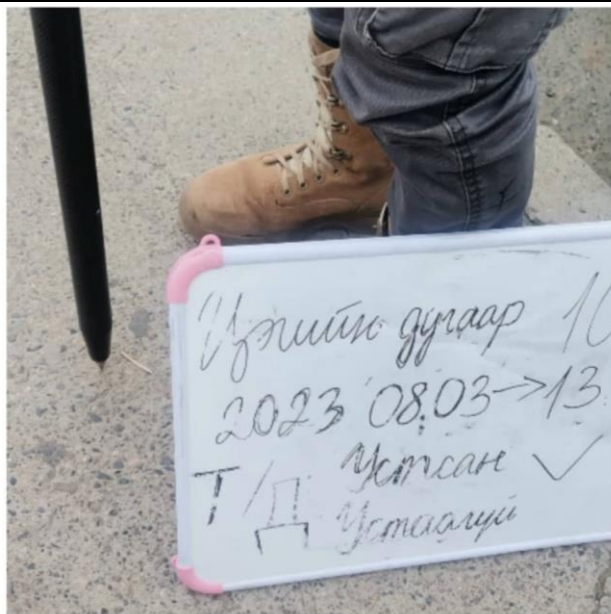 Цэгийн дугаар 10
2023 08.03→13.
Т/Д Устсан ✓
Устаагүй